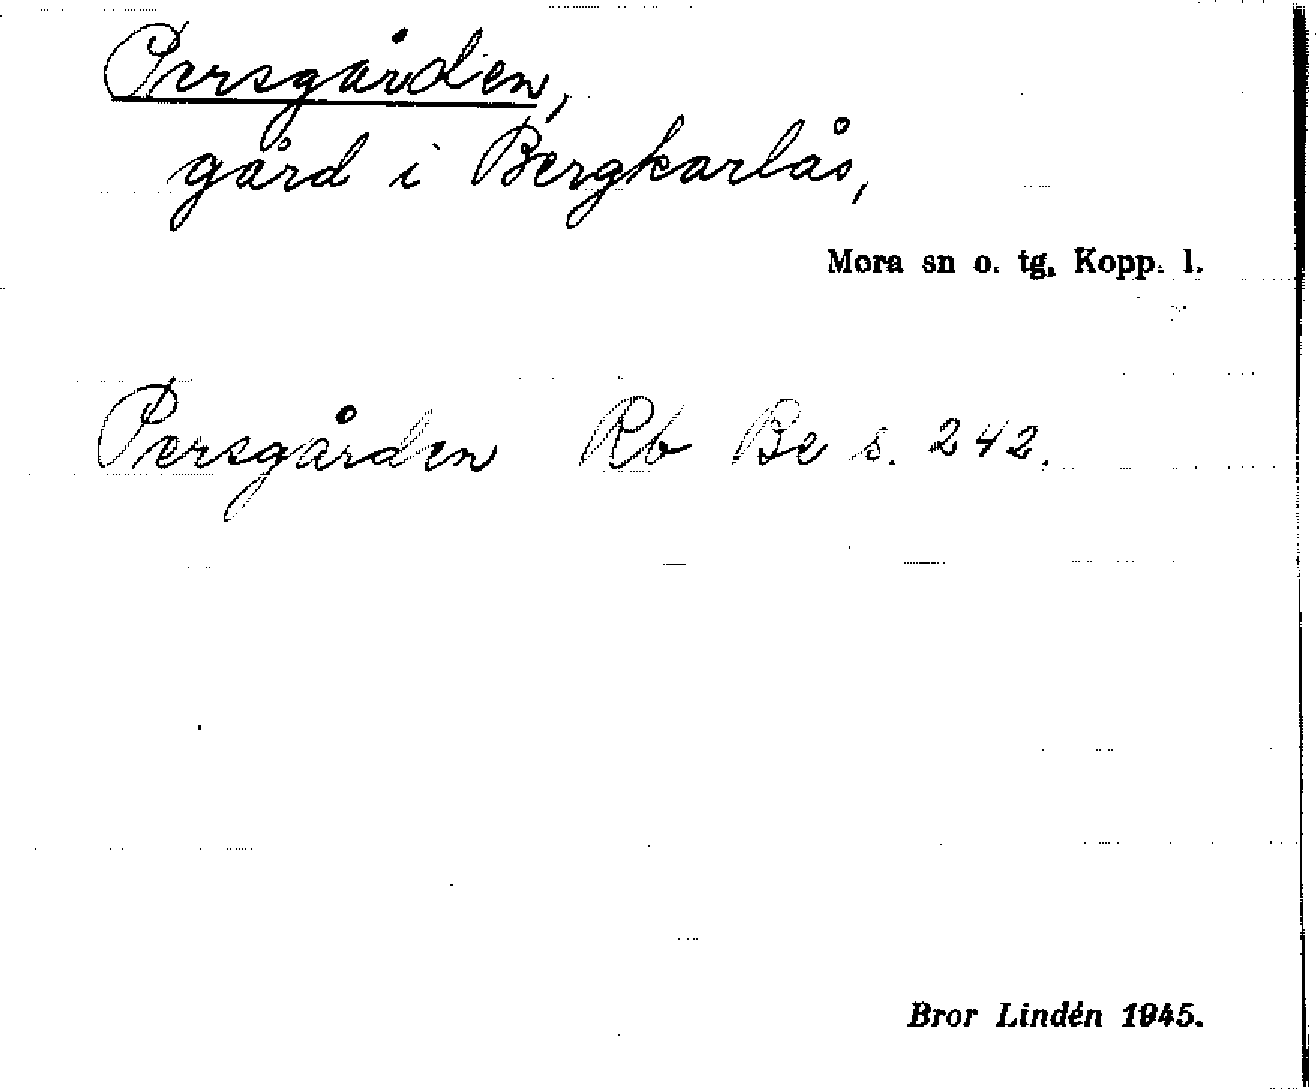 Persgården,
gård i Bergkarlås,
Mora sn o. tg. Kopp. l.
Persgården Rb Be s. 242.
Bror Lindén 1945.